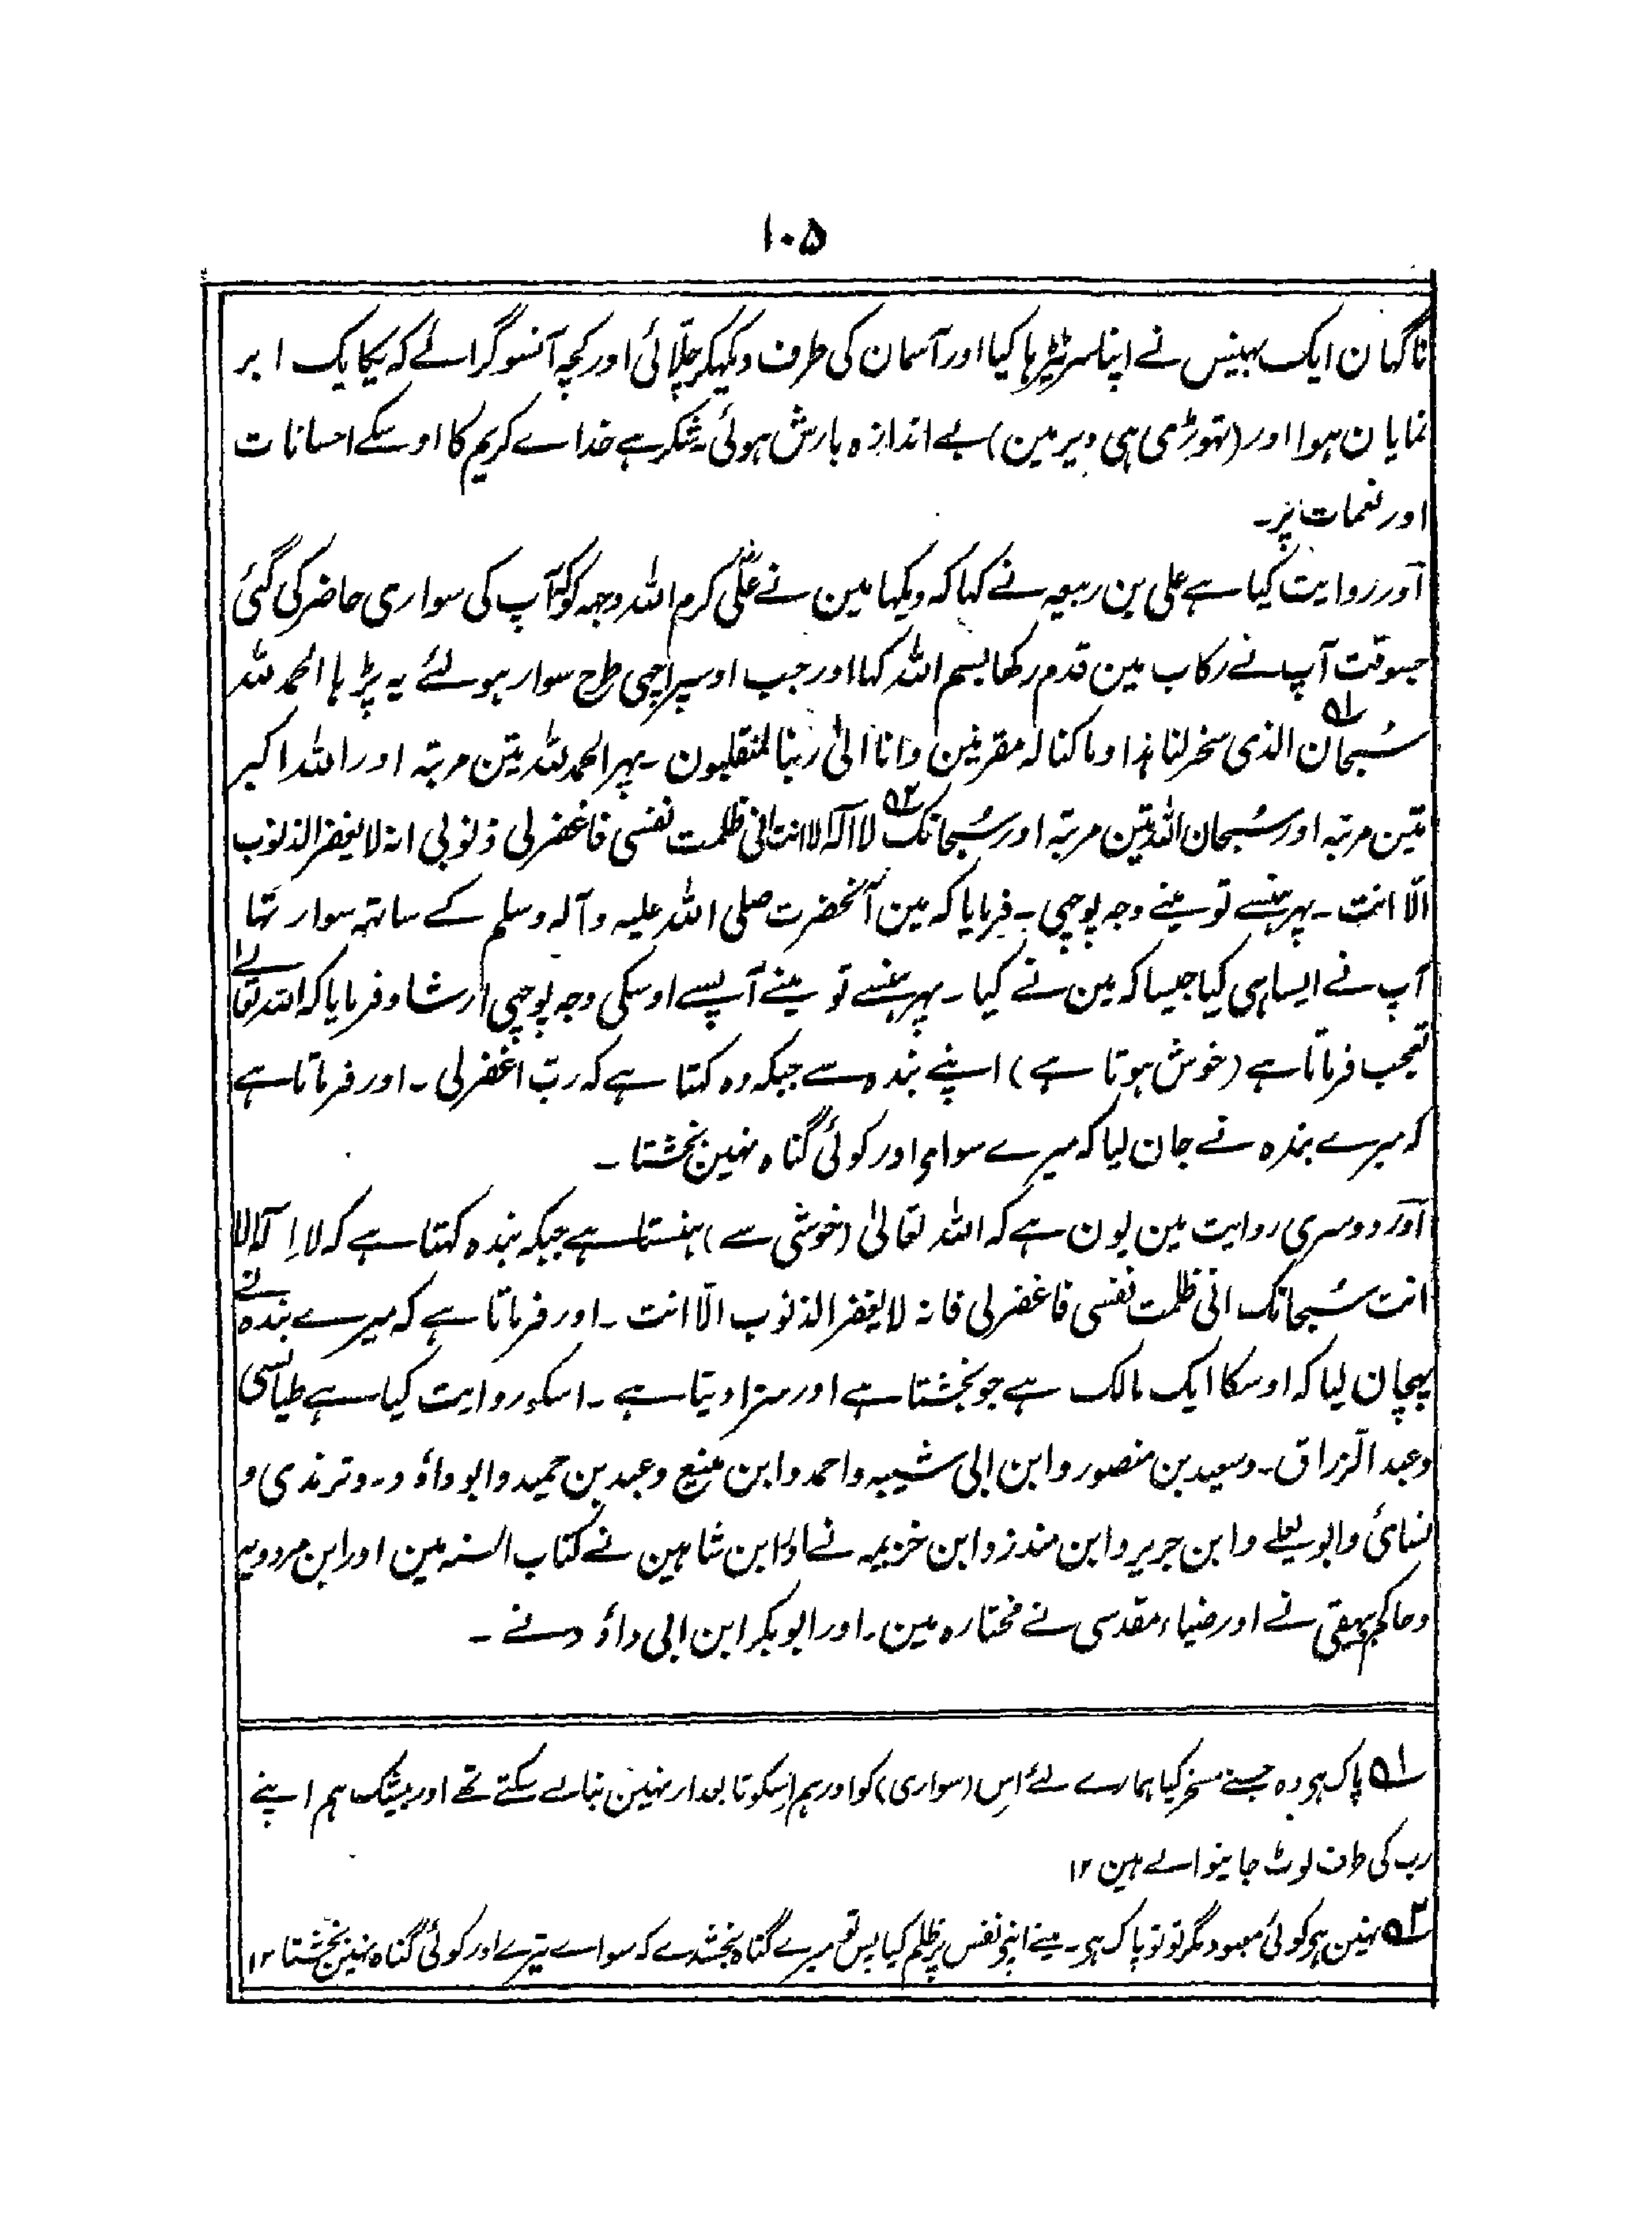 ۱۰۵
ناگہان ایک بہینس نے اپنا سر ٹیڑہا کیا اور آسمان کی طرف دیکہکر چلّائی اور کچہ آنسو گرائے کہ یکایک ابر
نمایان ہوا اور (تہوڑی ہی دیر مین) بے اندازہ بارش ہوئی۔ شکر ہے خداے کریم کا اوسکے احسانات
اور نعمات پر۔
آور روایت کیا ہے علی بن ربیعہ نے کہا کہ دیکہا مین نے علیؓ کرم اللہ وجہہ کو کہ آپ کی سواری حاضر کی گئی
جسوقت آپ نے رکاب مین قدم رکھا بسم اللہ کہا اور جب اوسپر اچہی طرح سوار ہولئے یہ پڑہا الحمد للہ
سُبحان الذی سخر لنا ہذا وما کنا لہ مقرنین وانا الیٰ ربنا لمنقلبون۔ پہر الحمد للہ تین مرتبہ اور اللہ اکبر
تین مرتبہ اور سُبحان اللہ تین مرتبہ اور سُبحانک لا الٰہ الا انت انی ظلمت نفسی فاغفر لی ذنوبی انہ لا یغفر الذنوب
الّا انت۔ پہر ہنسے تو مینے وجہ پوچہی۔ فرمایا کہ مین آنحضرت صلی اللہ علیہ وآلہ وسلم کے ساتہہ سوار تہا
آپ نے ایسا ہی کیا جیسا کہ مین نے کیا۔ پہر ہنسے تو مینے آپسے اوسکی وجہ پوچہی ارشاد فرمایا کہ اللہ تعالے
تعجب فرماتا ہے (خوش ہوتا ہے) اپنے بندہ سے جبکہ وہ کہتا ہے کہ ربّ اغفر لی۔ اور فرماتا ہے
کہ میرے بندہ نے جان لیا کہ میرے سوا اور کوئی گناہ نہین بخشتا۔
آور دوسری روایت مین یون ہے کہ اللہ تعالیٰ (خوشی سے) ہنستا ہے جبکہ بندہ کہتا ہے کہ لا اِلٰہ الا
انت سُبحانک انی ظلمت نفسی فاغفر لی فانہ لا یغفر الذنوب الّا انت۔ اور فرماتا ہے کہ میرے بندہ نے
پہچان لیا کہ اوسکا ایک مالک ہے جو بخشتا ہے اور سزا دیتا ہے۔ اسکو روایت کیا ہے طیالسی
وعبد الرّزاق۔ وسعید بن منصور وابن ابی شیبہ واحمد وابن منیع وعبد بن حمید وابو داؤد۔ وترمذی و
نسائی وابو یعلے وابن جریر وابن منذر وابن خزیمہ نے اور ابن شاہین نے کتاب السنہ مین اور ابن مردویہ
وحاکم بیہقی نے اور ضیاء مقدسی نے مختارہ مین۔ اور ابو بکر ابن ابی داؤد نے۔
۱ پاک ہی وہ جسنے مسخر کیا ہمارے لئے اِس (سواری) کو اور ہم اِسکو تابعدار نہین بنا لے سکتے تھے اور بیشک ہم اپنے
رب کی طرف لوٹ جاینوالے ہین ۱۲
۲ نہین ہی کوئی معبود مگر تو تو پاک ہی۔ مینے اپنے نفس پر ظلم کیا پس تو میرے گناہ بخشدے کہ سواے تیرے اور کوئی گناہ نہین بخشتا ۱۲